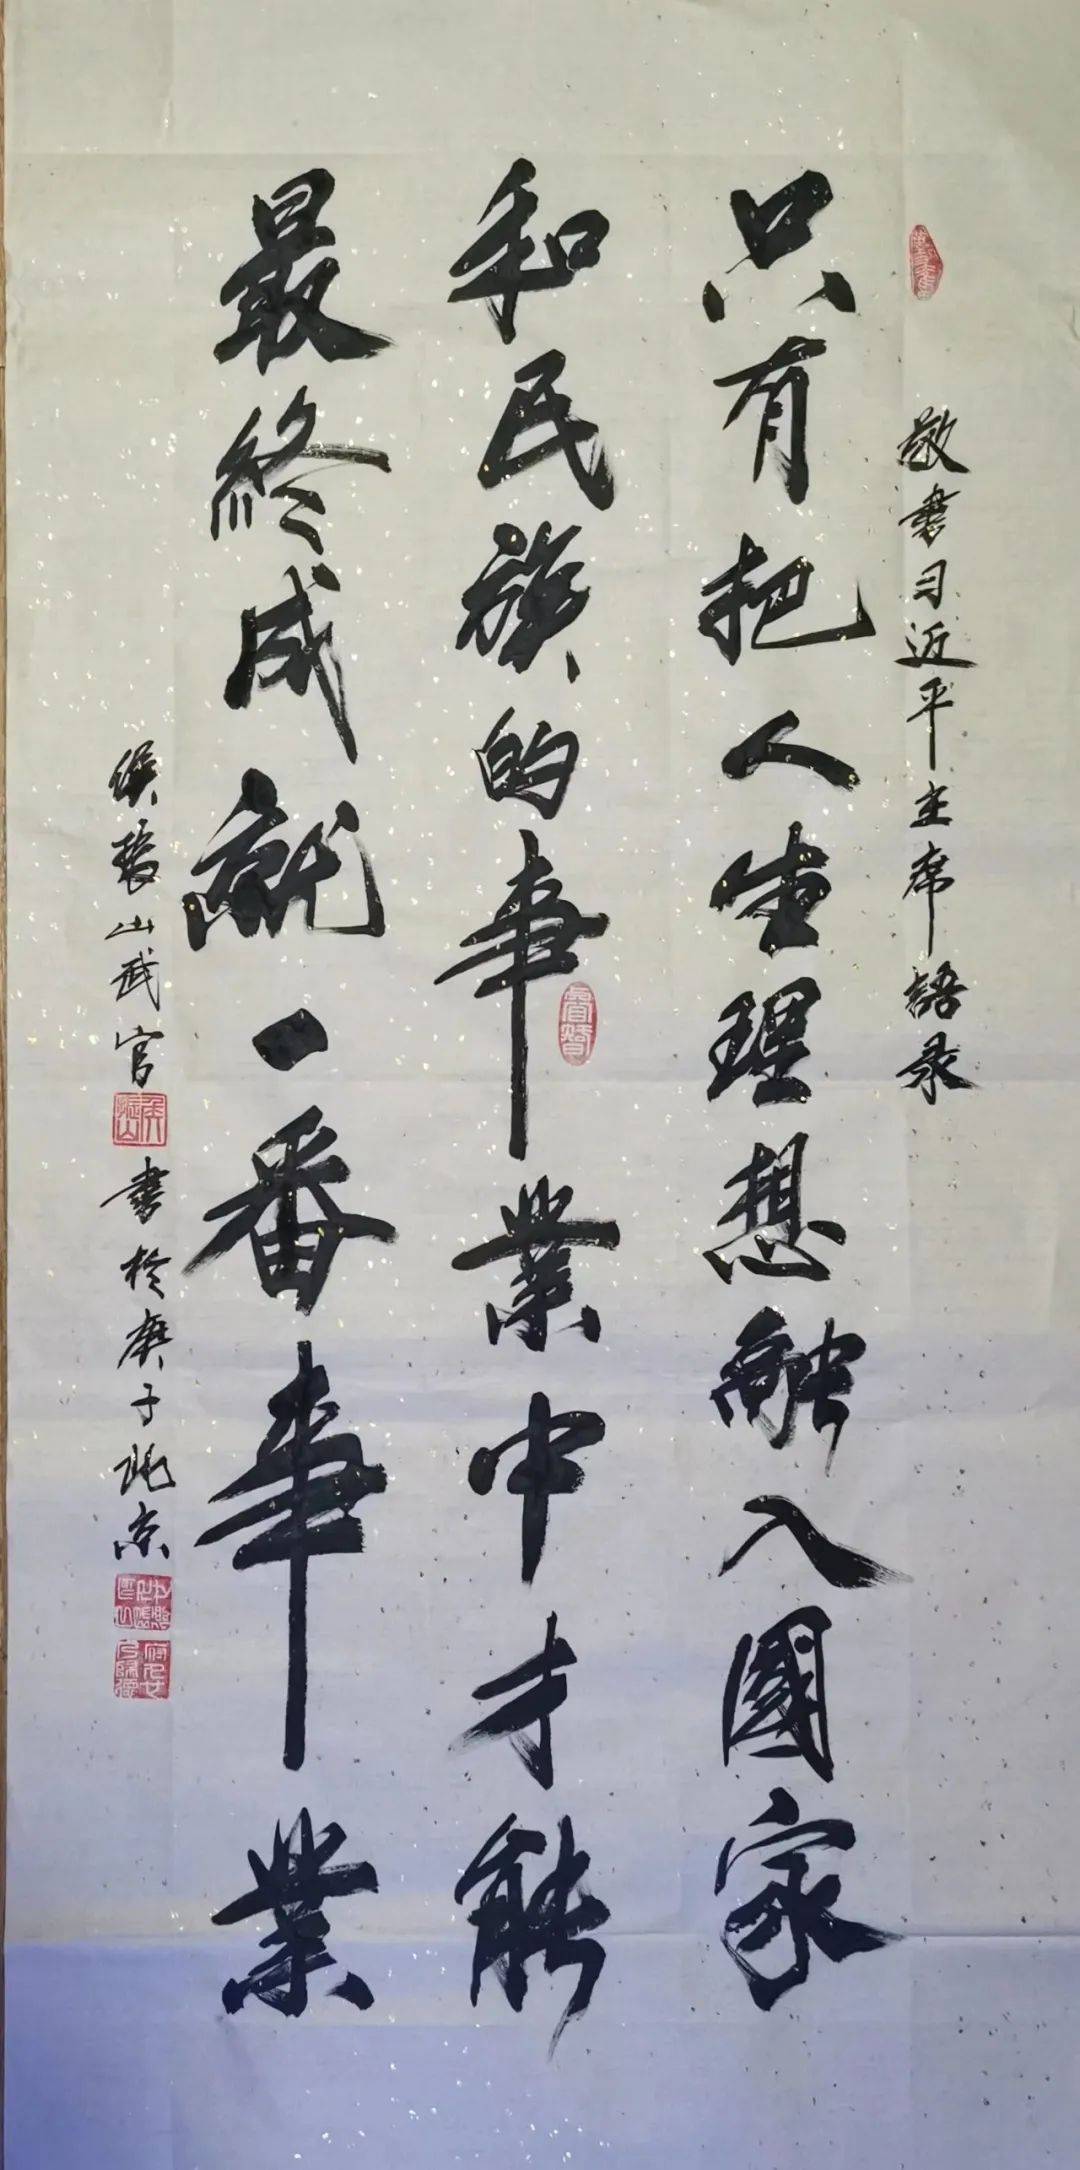 敬書习近平主席語录
只有把人生理想融入國家
和民族的事業中才能
最終成就一番事業
侯振山武官
書於庚子北京